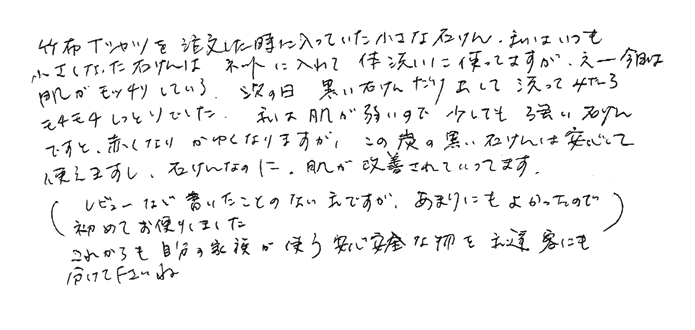 竹布Tシャツを注文した時に入っていた小さな石けん。私はいつも
小さくなった石けんは ネットに入れて体洗いに使ってますが、えー今日は
肌がモッチリしている。次の日 黒い石けんだけ出して洗ってみたら
モチモチしっとりでした。私は肌が弱いので少しでも強い石けん
ですと、赤くなりかゆくなりますが、この炭の黒い石けんは安心して
使えますし、石けんなのに、肌が改善されていってます。
(レビューなど書いたことのない私ですが、あまりにもよかったので
初めてお便りしました)
これからも自分の家族が使う安心安全な物を私達客にも
分けて下さいね